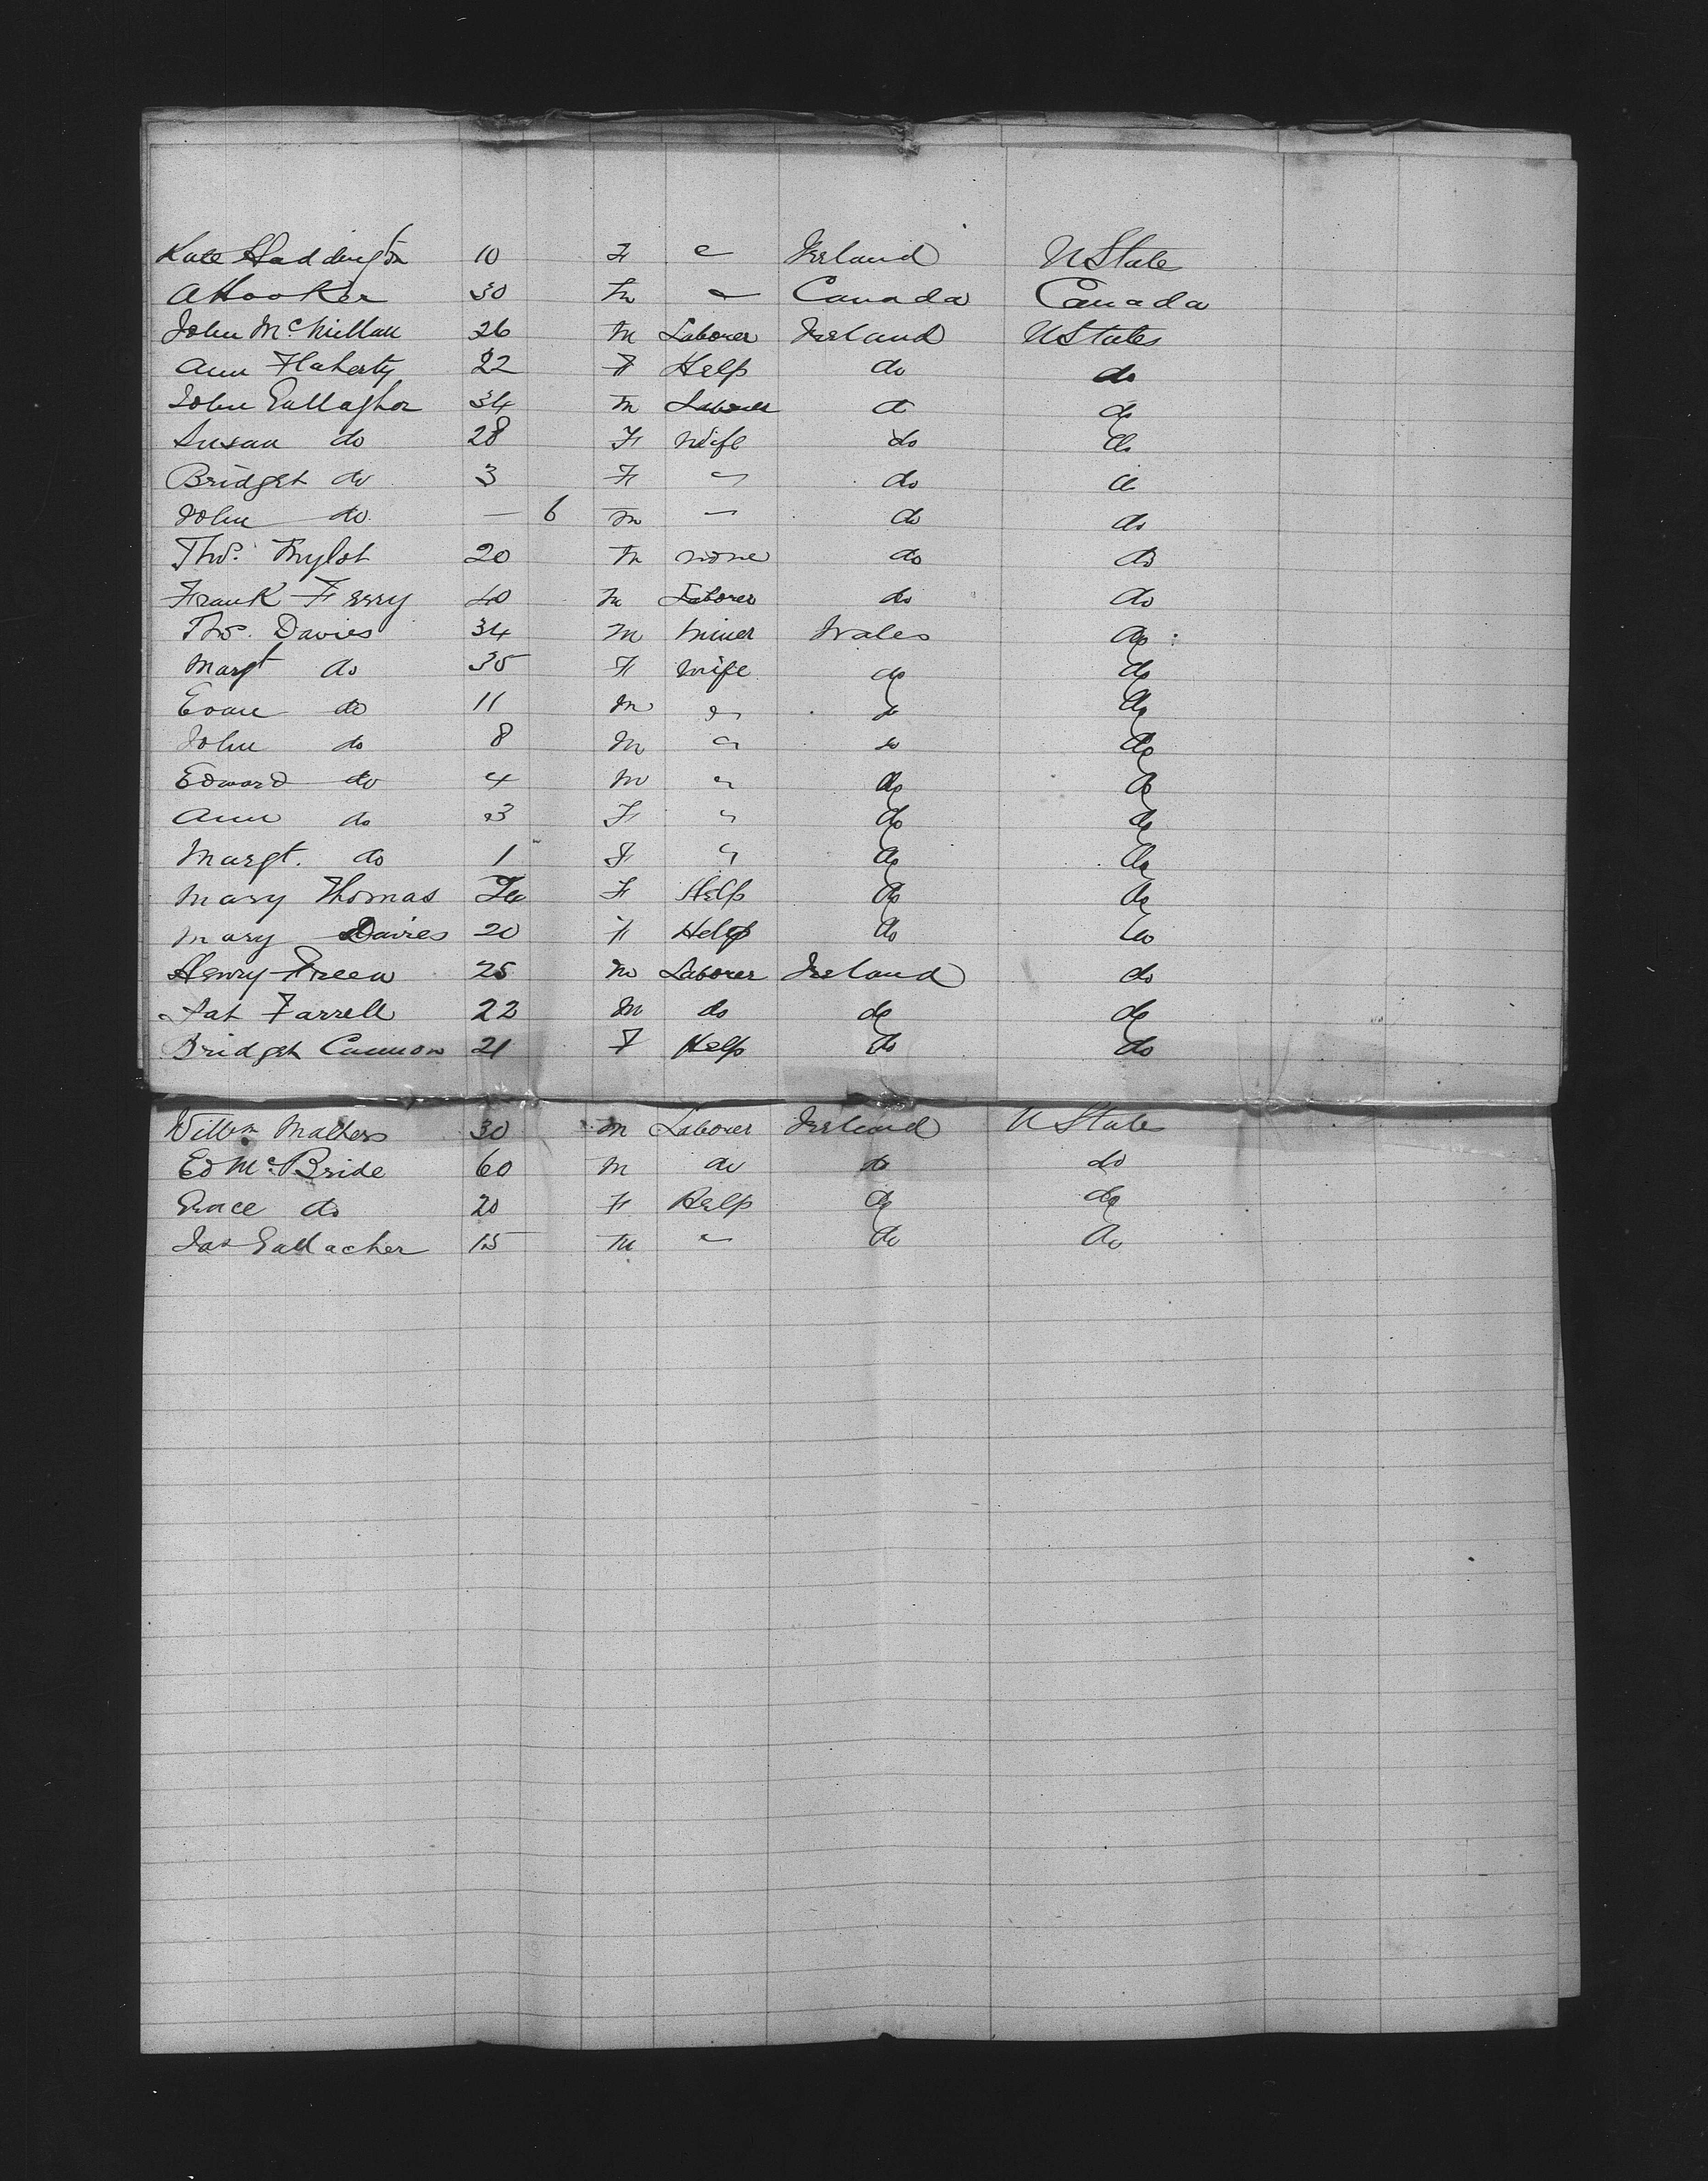 Kate Haddington 10 F " Ireland U State
A Hooker 30 M " Canada Canada
John McMillan 26 M Laborer Ireland U States
Ann Flaherty 22 F Help do do
John Gallagher 34 M Laborer do do
Susan do 28 F Wife do do
Bridget do 3 F " do do
John do — 6 M " do do
Thos. 20 M none do do
Frank Ferry 40 M Laborer do do
Thos. Davies 34 M Miner Wales do
Margt do 35 F Wife do do
Evan do 11 M " do do
John do 8 M " do do
Edward do 4 M " do do
Ann do 3 F " do do
Margt. do 1 F " do do
Mary Thomas F Help do do
Mary Davies 20 F Help do do
Henry Green 25 M Laborer Ireland do
Pat Farrell 22 M do do do
Bridget Cannon 21 F Help do do
Willm Mathers 30 M Laborer Ireland U State
Ed McBride 60 M do do do
Grace do 20 F Help do do
Jas Gallacher 15 M " do do